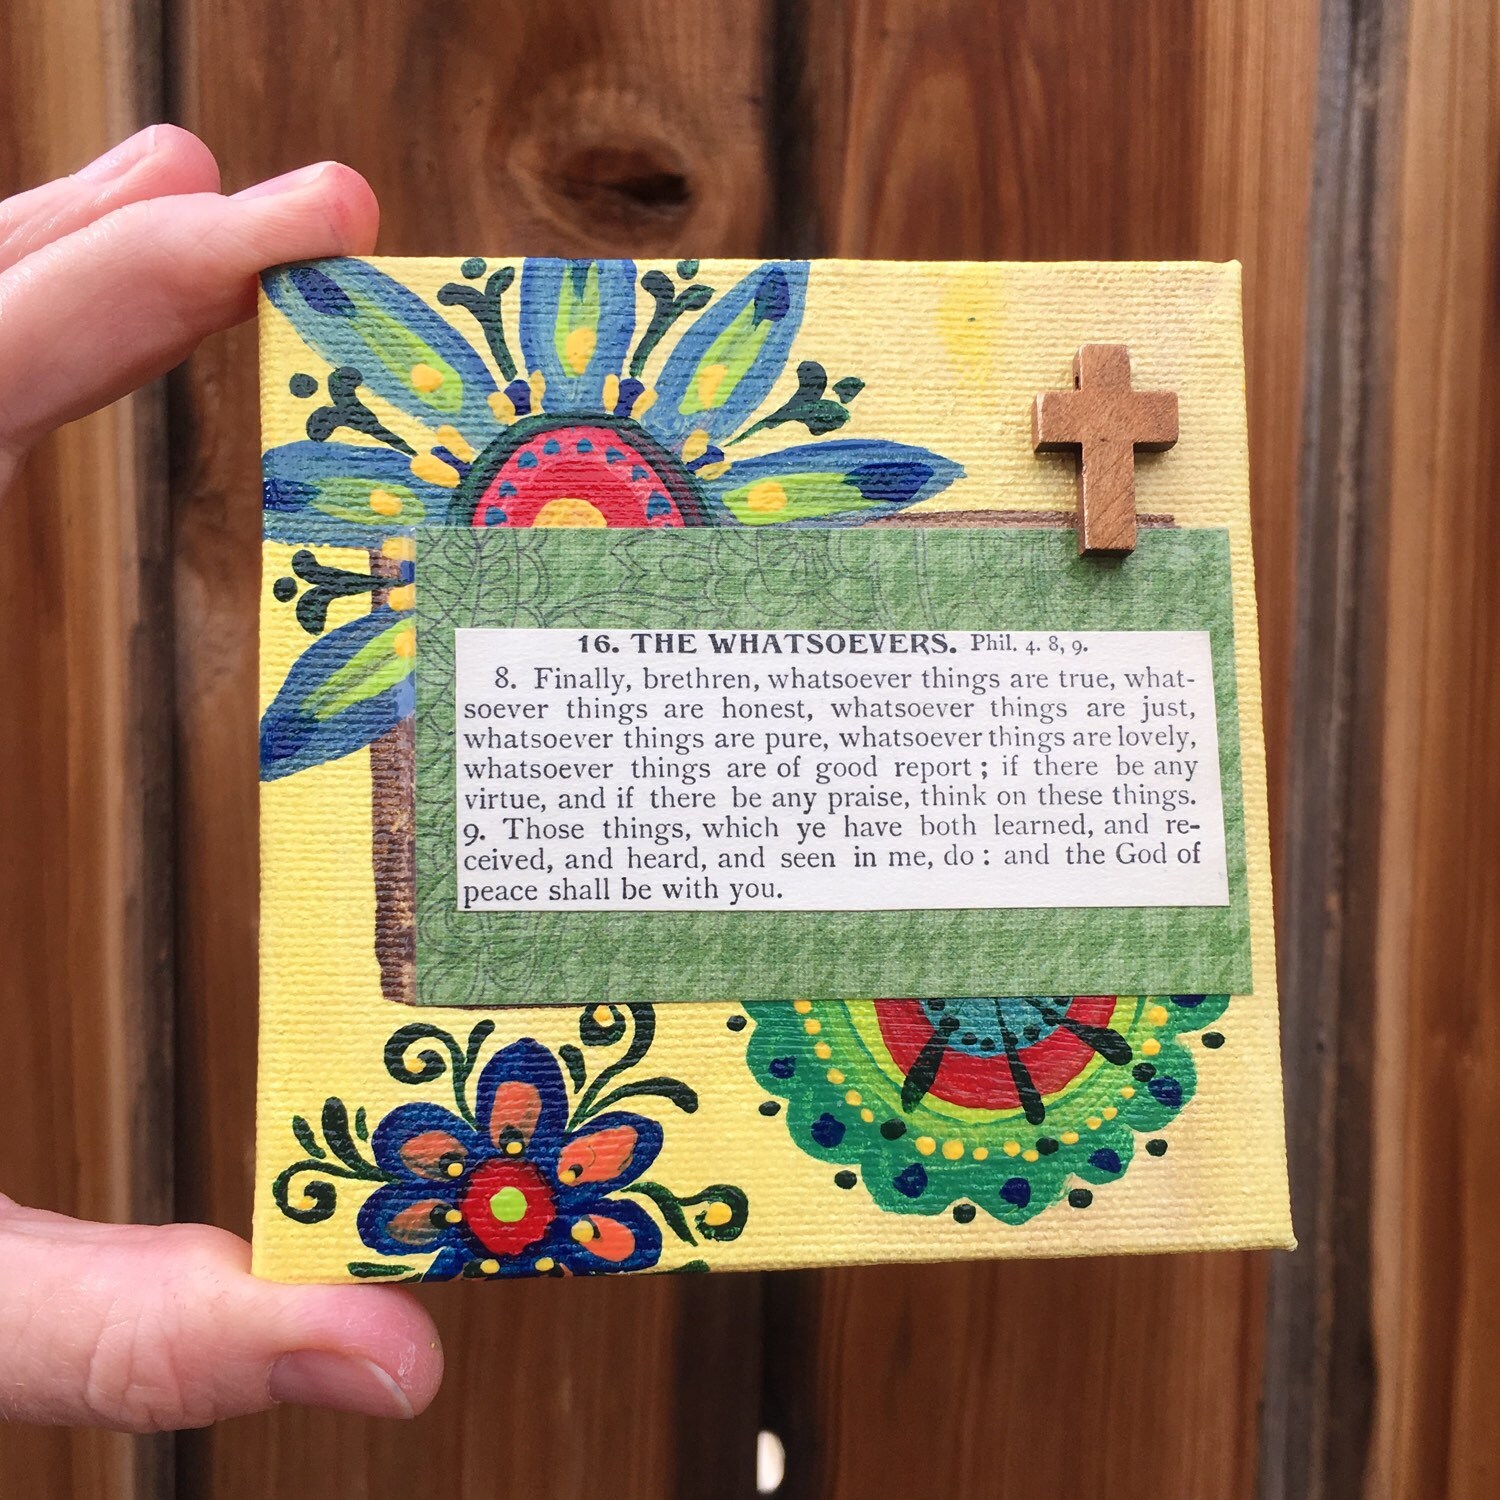 16. THE WHATSOEVERS. Phil. 4. 8, 9.
8. Finally, brethren, whatsoever things are true, what-
soever things are honest, whatsoever things are just,
whatsoever things are pure, whatsoever things are lovely,
whatsoever things are of good report ; if there be any
virtue, and if there be any praise, think on these things.
9. Those things, which ye have both learned, and re-
ceived, and heard, and seen in me, do : and the God of
peace shall be with you.